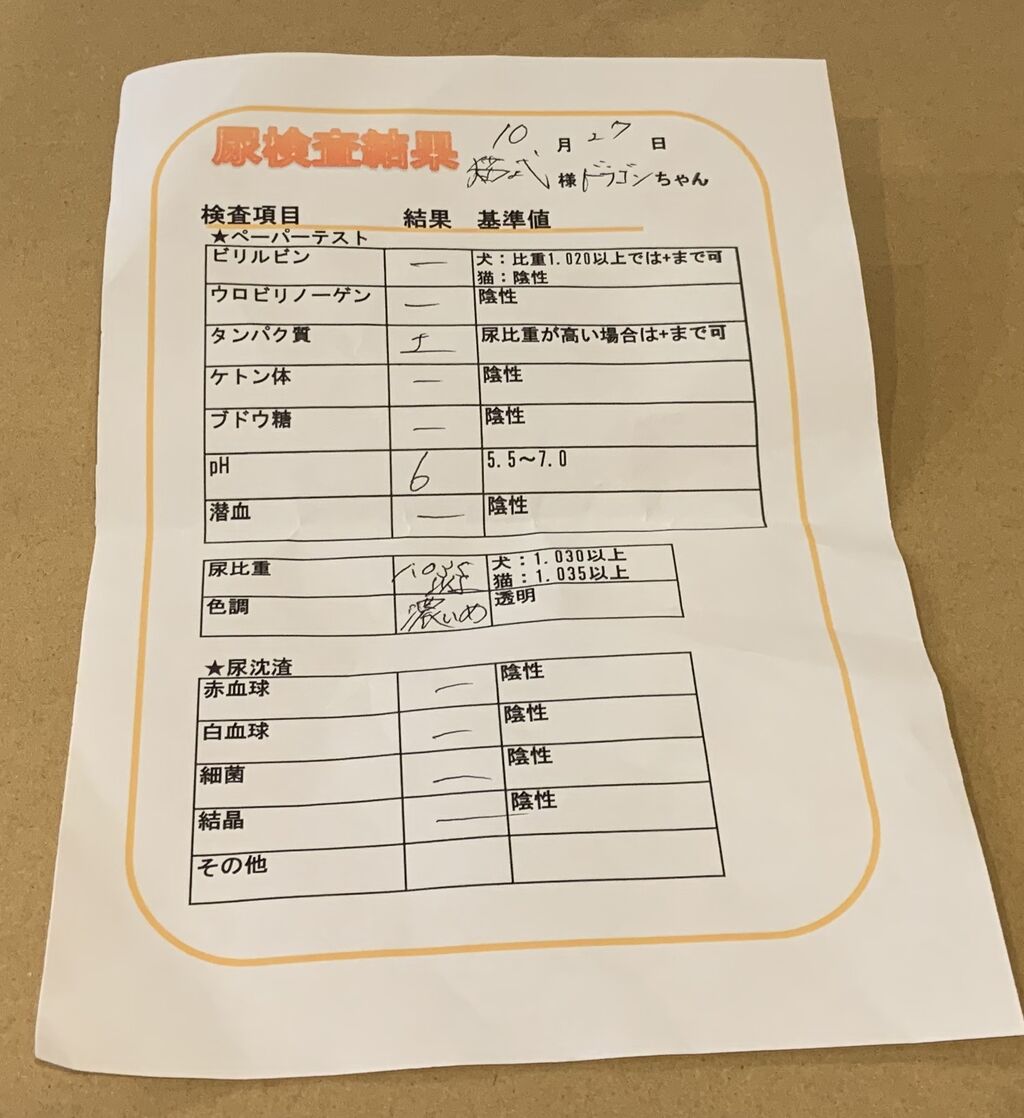 尿検査結果 10月27日
様ドラゴンちゃん
検査項目 結果 基準値
★ペーパーテスト
ビリルビン － 犬：比重1.020以上では+まで可
猫：陰性
ウロビリノーゲン － 陰性
タンパク質 ± 尿比重が高い場合は+まで可
ケトン体 － 陰性
ブドウ糖 － 陰性
pH 6 5.5～7.0
潜血 － 陰性
尿比重 1.035 犬：1.030以上
以上 猫：1.035以上
色調 濃いめ 透明
★尿沈渣
赤血球 － 陰性
白血球 － 陰性
細菌 － 陰性
結晶 － 陰性
その他